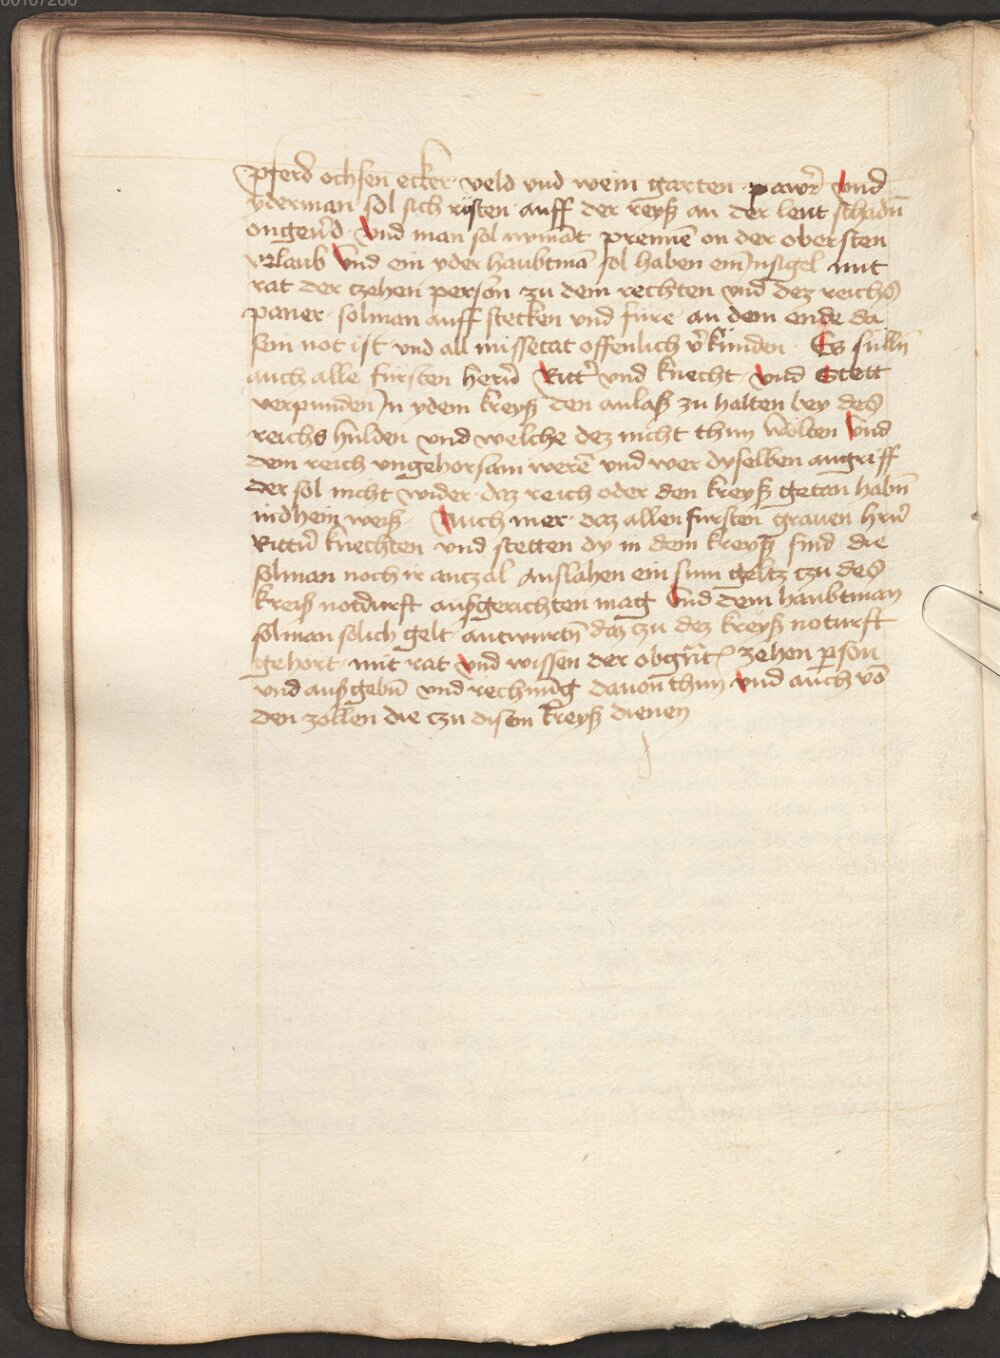 00107266
pferd ochsen ecker veld vnd wein garten pawr̄ vnd
yderman sol sich rüsten auff der reyß an der leut schadn̄
ongeuerd Vnd man sol nymāt prennē on der obersten
vrlaub Vnd ein yder haubtmā sol haben ein Jnsigel mit
rat der czehen person zu dem rechten vnd dez reichs
paner solman auff stecken vnd füre an dem ende da
sein not ist vnd all missetat offenlich v̄kunden Es sülln̄
auch alle fürsten herñ Ritt̄ vnd knecht Vnd Stett
verpunden Jn ydem kreyß den anlaß zu halten bey des
reichs hulden vnd welche dez nicht thun wolten Vnd
dem reich vngehorsam werē vnd wer dyselben angriff
der sol nicht wider daz reich oder den kreyß getan habn̄
indhein weiß Auch mer daz allen fursten grauen hrñ
Rittñ knechten vnd stetten dy in dem kreyß sind die
solman noch ir anczal Anslahen ein sum geltz czu des
kreiß notdurft außgerichten mag Vnd dem haubtman
solman solich gelt antwurtn̄ daz czu dez kreyß noturft
gehort mit rat vnd wissen der obgn̄t zehen ꝑson
vnd außgebn̄ vnd rechnūg dauon thun vnd auch vō
den zollen die czu disem kreyß dienen